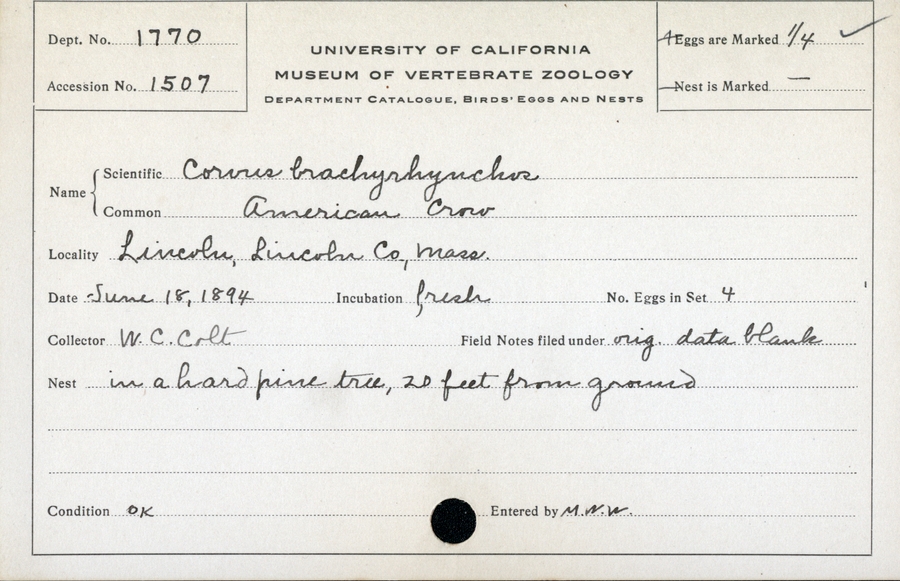 Dept. No. 1770
Accession No. 1507
UNIVERSITY OF CALIFORNIA
MUSEUM OF VERTEBRATE ZOOLOGY
DEPARTMENT CATALOGUE, BIRDS' EGGS AND NESTS
Eggs are Marked 1/4 ✓
Nest is Marked —
Name
Scientific Corvus brachyrhynchos
Common American Crow
Locality Lincoln, Lincoln Co, Mass.
Date June 18, 1894 Incubation fresh No. Eggs in Set 4
Collector W. C. Colt Field Notes filed under orig. data blank
Nest in a hard pine tree, 20 feet from ground
Condition OK Entered by M.W.W.